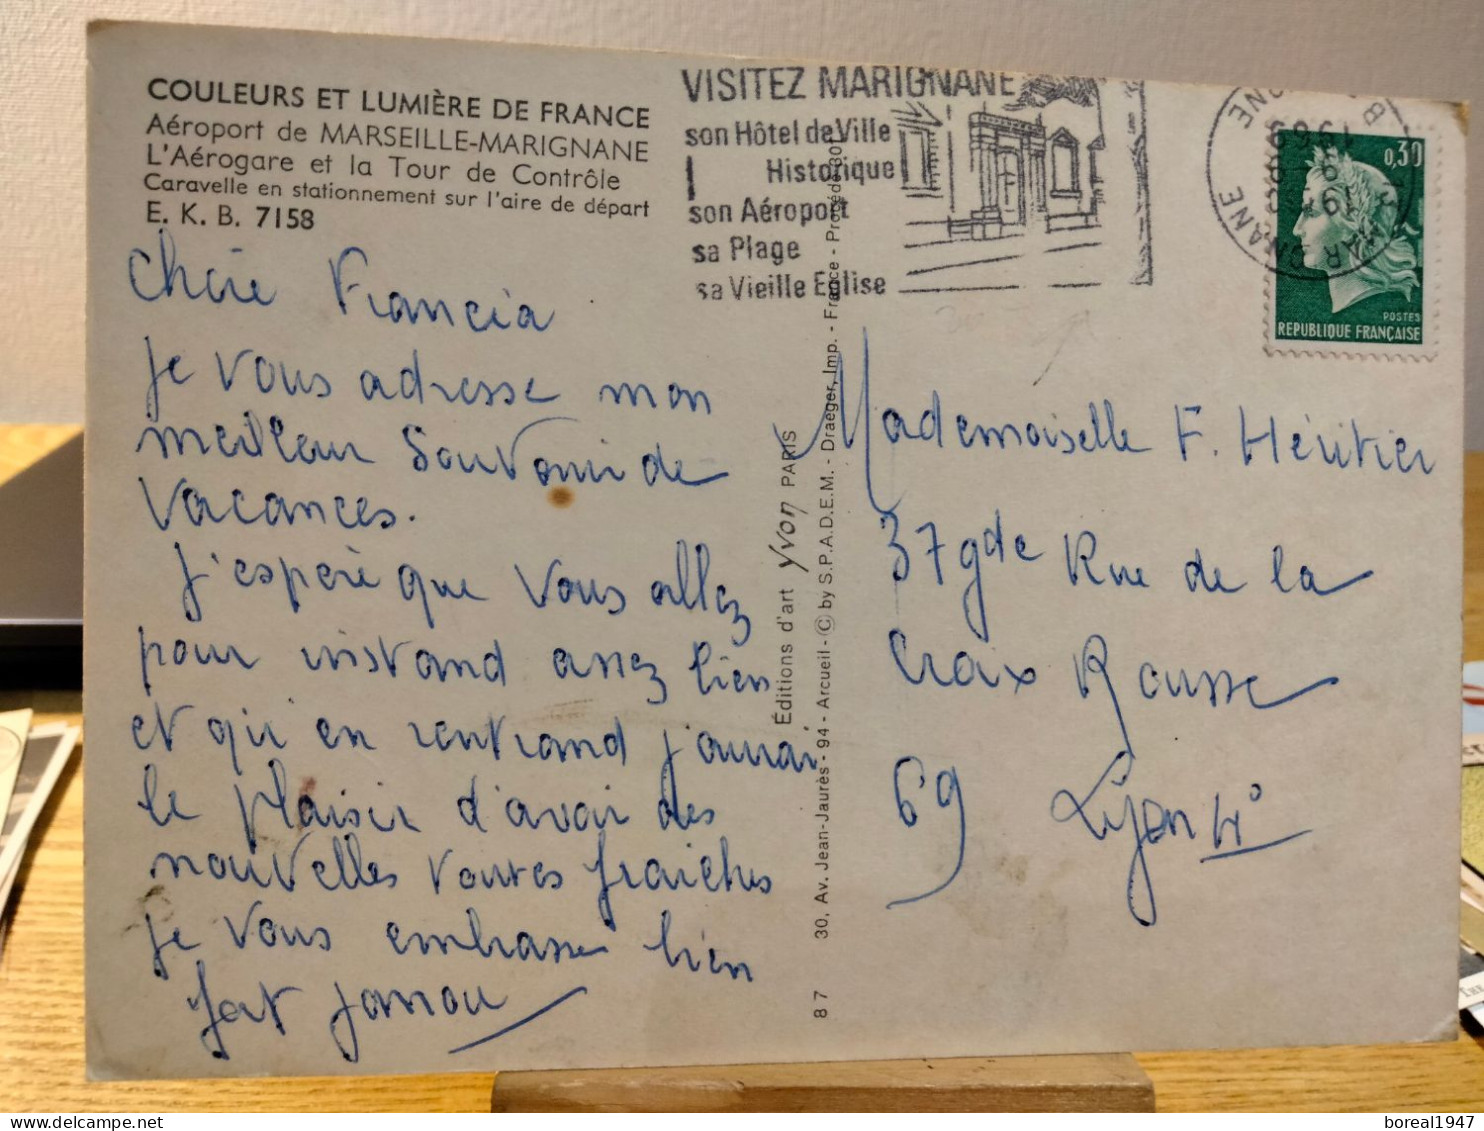 COULEURS ET LUMIÈRE DE FRANCE
Aéroport de MARSEILLE-MARIGNANE
L'Aérogare et la Tour de Contrôle
Caravelle en stationnement sur l'aire de départ
E. K. B. 7158
Chère Francia
Je vous adresse mon
meilleur Souvenir de
Vacances.
J'espère que Vous allez
pour instand assez bien
et qu'en rentrand j'aurai
le plaisir d'avoir des
nouvelles toutes fraiches
Je vous embrasse bien
fort
VISITEZ MARIGNANE
son Hôtel de Ville
Historique
son Aéroport
sa Plage
sa Vieille Eglise
1969
0,30
POSTES
REPUBLIQUE FRANÇAISE
Éditions d'art Yvon PARIS
87 30, Av. Jean-Jaurès - 94 - Arcueil - © by S.P.A.D.E.M. - Draeger, Imp. - France - Procédé 301
Mademoiselle F. Héritier
37 gde Rue de la
Croix Rousse
69 Lyon 4°
boreal1947